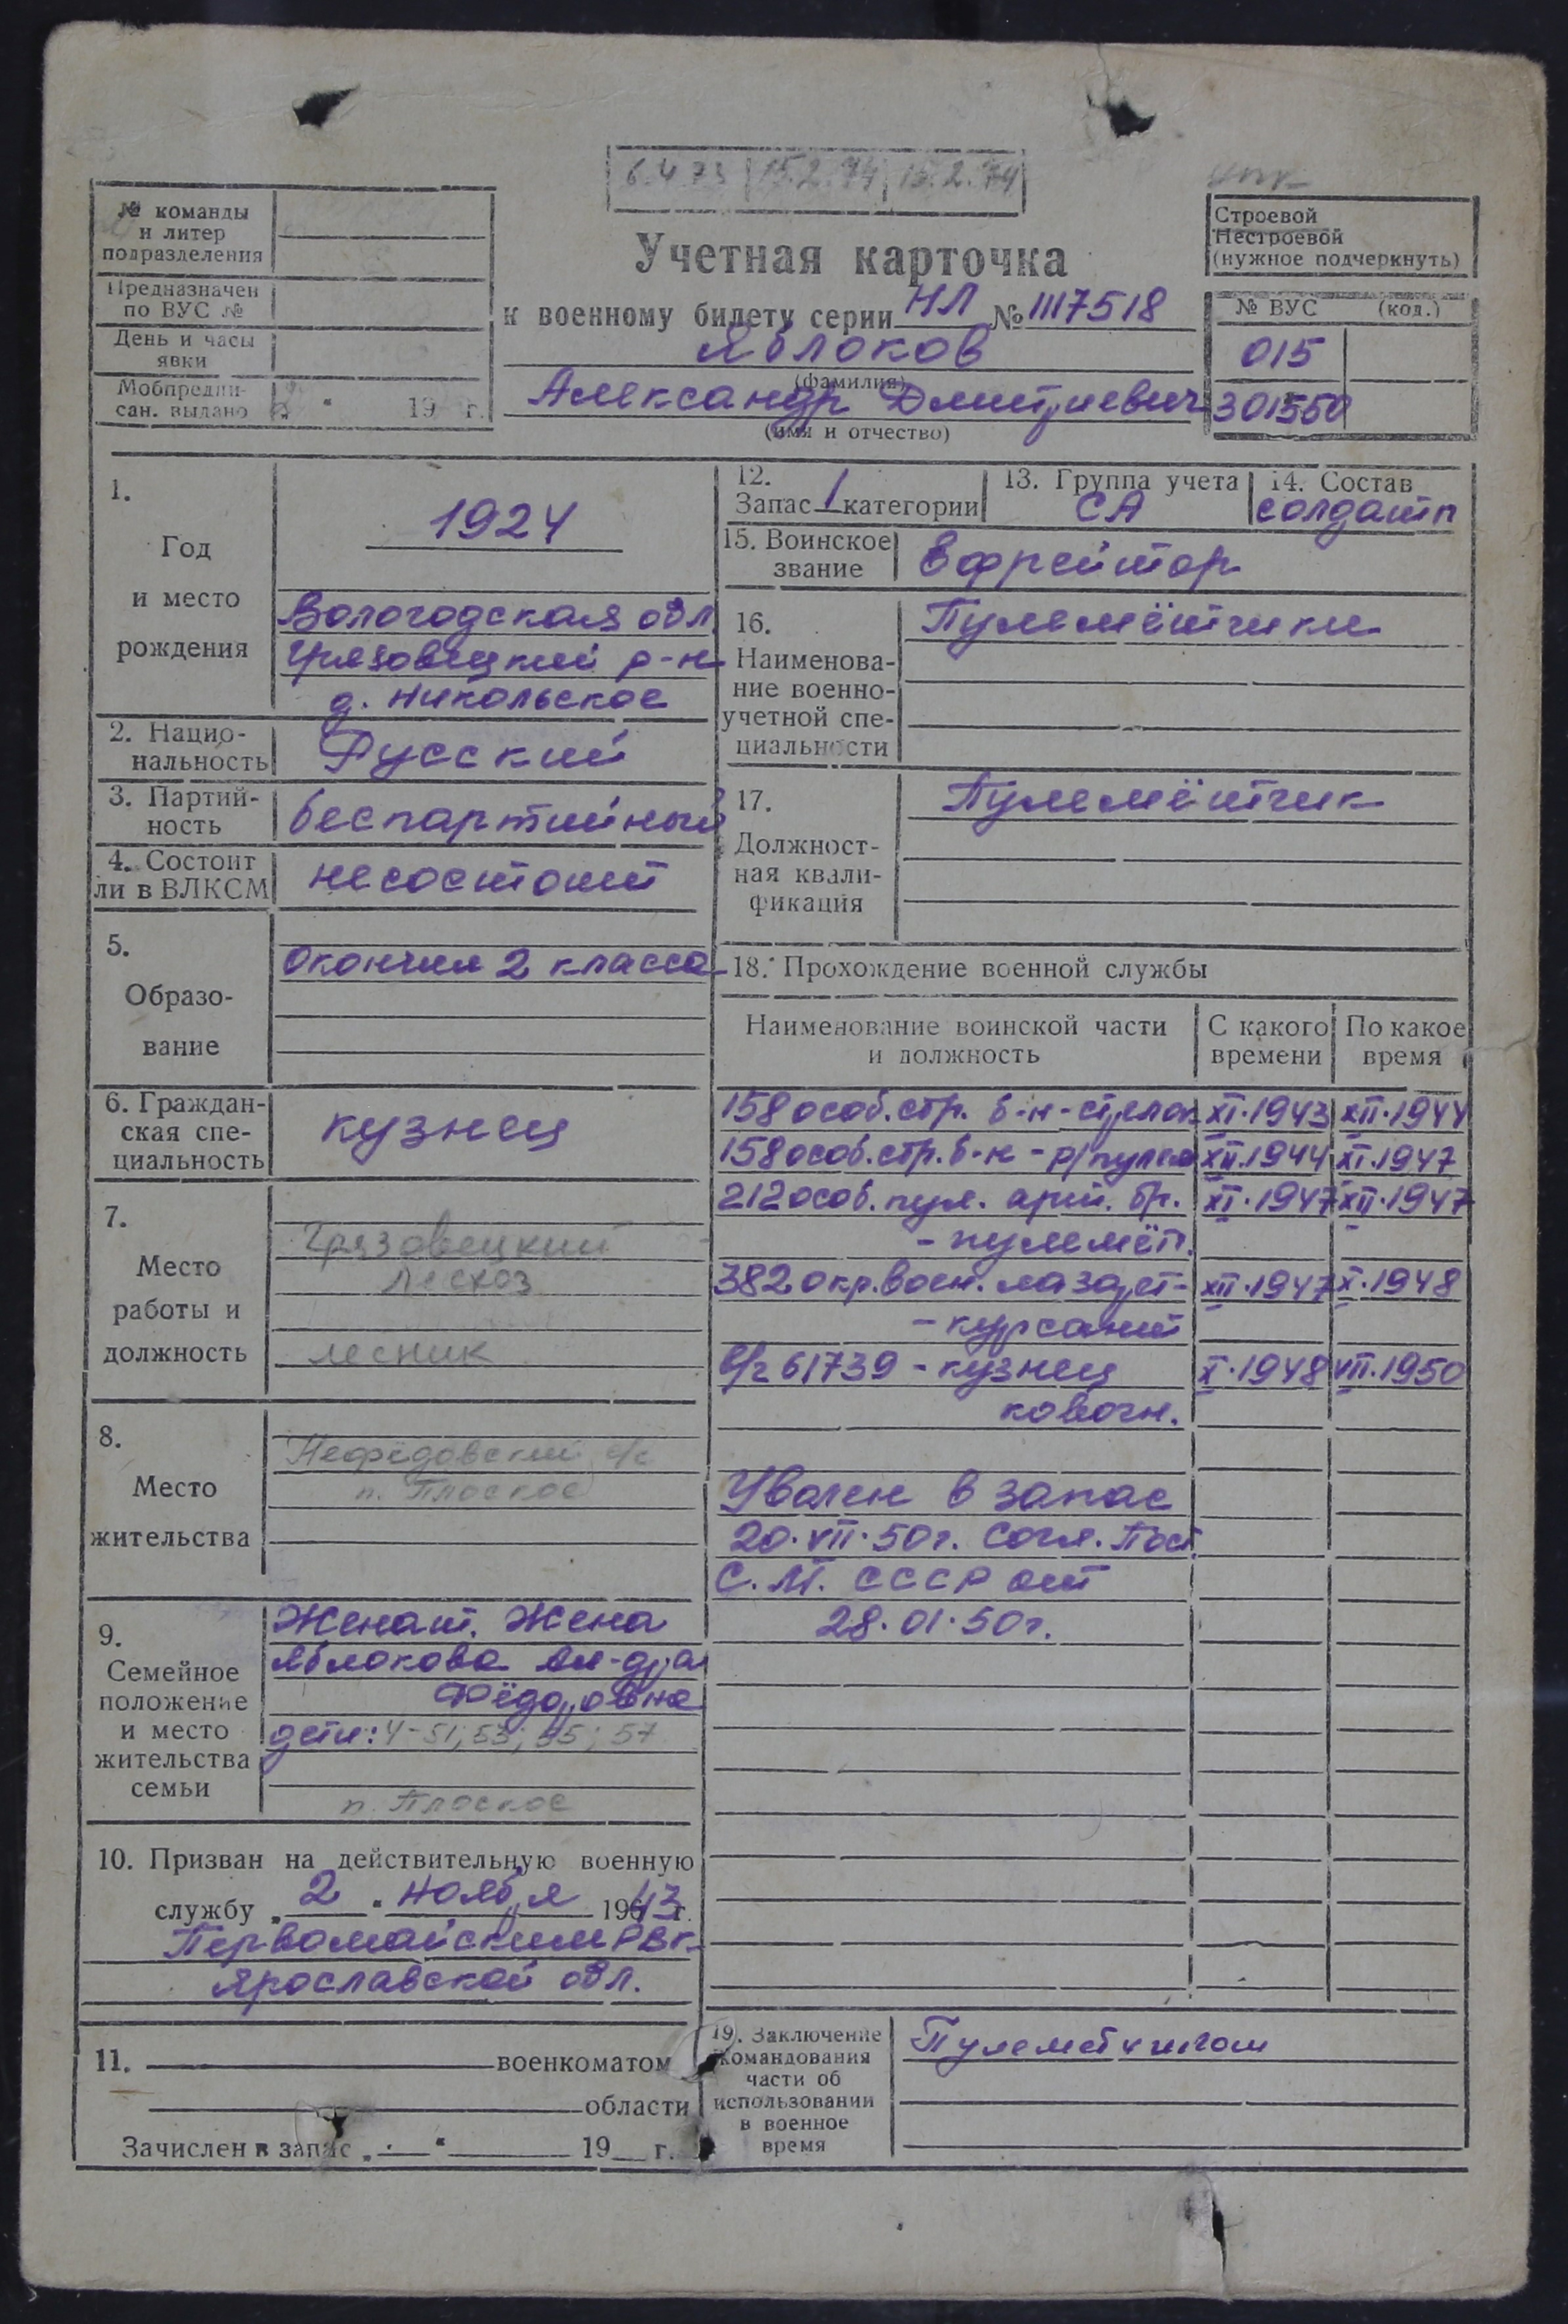 6.4.73 15.2.74 15.2.74
№ команды
и литер
подразделения
Предназначен
по ВУС №
День и часы
явки
Мобпредпи-
сан. выдано „ “ 19 г.
Учетная карточка
к военному билету серии НЛ № 1117518
Яблоков
(фамилия)
Александр Дмитриевич
(имя и отчество)
Строевой
Нестроевой
(нужное подчеркнуть)
№ ВУС (код.)
015
301550
1.
Год
и место
рождения
1924
Вологодская обл.
Грязовецкий р-н
д. Никольское
2. Нацио-
нальность
Русский
3. Партий-
ность
беспартийный
4. Состоит
ли в ВЛКСМ
несостоит
5.
Образо-
вание
Окончил 2 класса
6. Граждан-
ская спе-
циальность
кузнец
7.
Место
работы и
должность
Грязовецкий
лесхоз
лесник
8.
Место
жительства
Нефёдовский с/с
п. Плоское
9.
Семейное
положение
и место
жительства
семьи
Женат. Жена
Яблокова Ал-дра
Фёдоровна
дети: 4-51; 53; 55; 57
п. Плоское
10. Призван на действительную военную
службу „2“ ноября 1943 г.
Первомайским РВК
Ярославской обл.
11. военкоматом
области
Зачислен в запас „ “ 19 г.
12.
Запас 1 категории
13. Группа учета
СА
14. Состав
солдатп
15. Воинское
звание
Ефрейтор
16.
Наименова-
ние военно-
учетной спе-
циальности
Пулемётчики
17.
Должност-
ная квали-
фикация
Пулемётчик
18. Прохождение военной службы
Наименование воинской части
и должность
С какого
времени
По какое
время
158 особ. стр. б-н - стрелок XI.1943 XII.1944
158 особ. стр. б-н - р/пулем XII.1944 XI.1947
212 особ. пул. арт. бр. XI.1947 XII.1947
- пулемёт.
382 окр. воен. лазарет- XII.1947 X.1948
- курсант
в/ч 61739 - кузнец X.1948 VII.1950
ковочн.
Уволен в запас
20.VII.50г. Согл. Пост.
С.М. СССР от
28.01.50г.
19. Заключение
командования
части об
использовании
в военное
время
Пулеметчиком